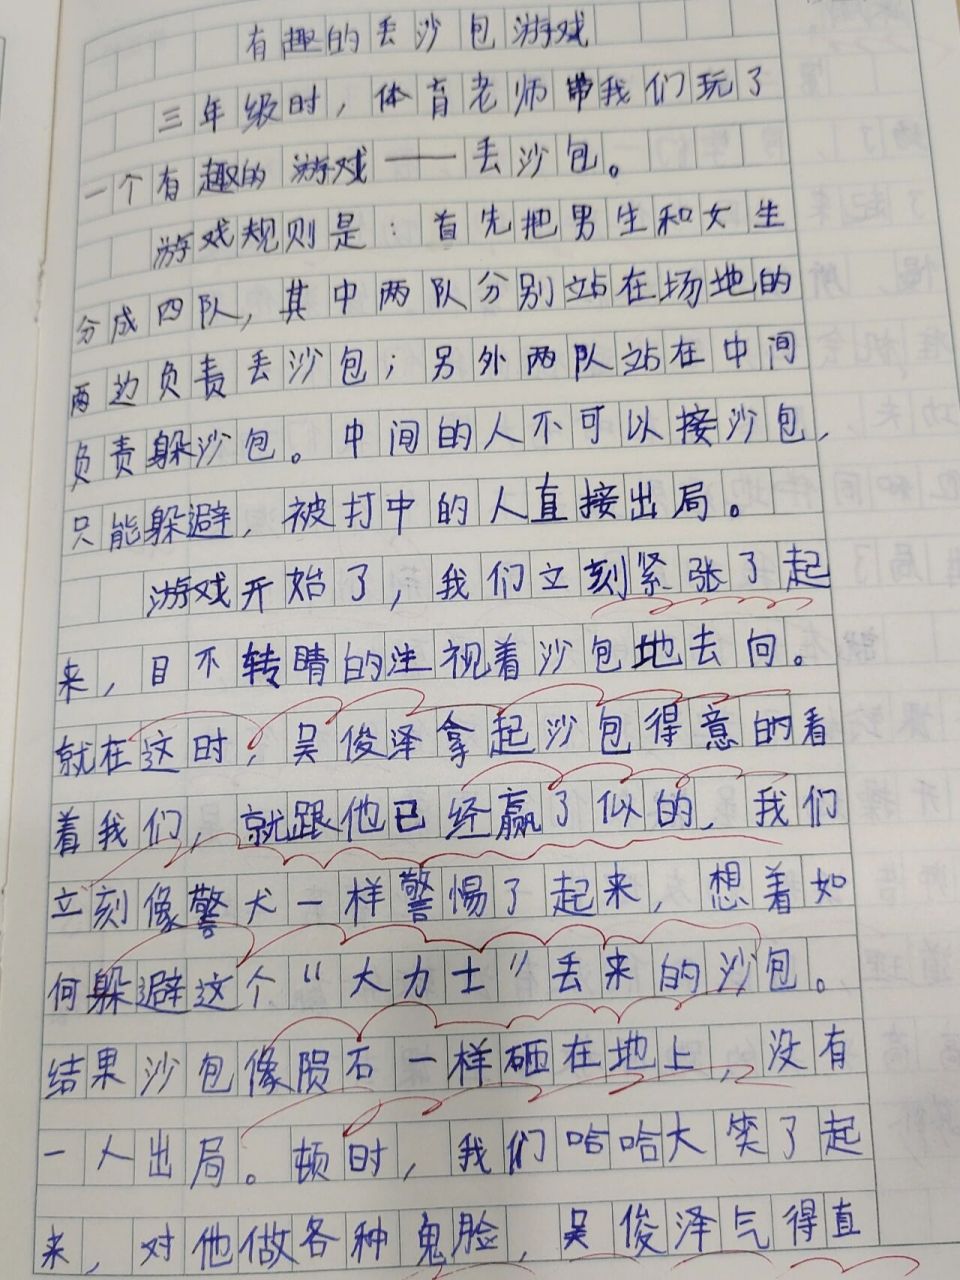 有趣的丢沙包游戏
三年级时，体育老师带我们玩了
一个有趣的游戏——丢沙包。
游戏规则是：首先把男生和女生
分成四队，其中两队分别站在场地的
两边负责丢沙包；另外两队站在中间
负责躲沙包。中间的人不可以接沙包，
只能躲避，被打中的人直接出局。
游戏开始了，我们立刻紧张了起
来，目不转睛的注视着沙包地去向。
就在这时，吴俊泽拿起沙包得意的看
着我们，就跟他已经赢了似的，我们
立刻像警犬一样警惕了起来，想着如
何躲避这个“大力士”丢来的沙包。
结果沙包像陨石一样砸在地上，没有
一人出局。顿时，我们哈哈大笑了起
来，对他做各种鬼脸，吴俊泽气得直